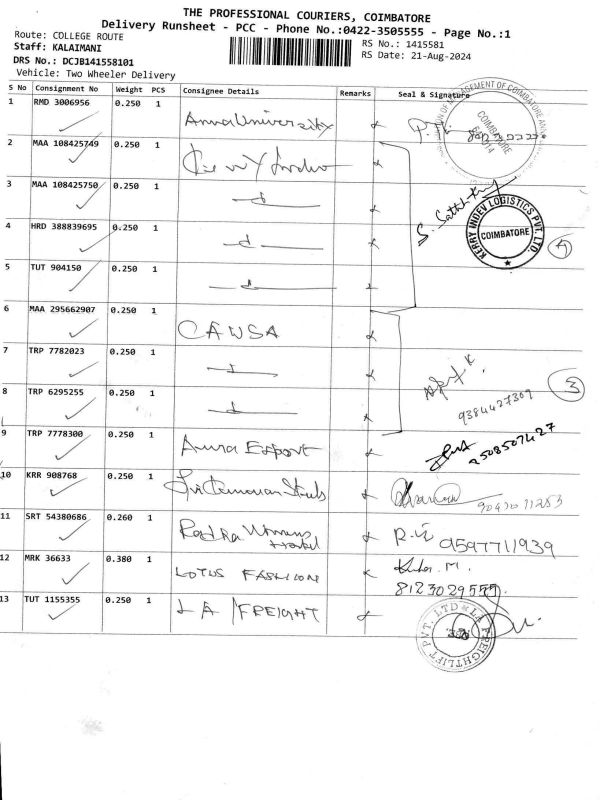 THE PROFESSIONAL COURIERS, COIMBATORE
Delivery Runsheet - PCC - Phone No.:0422-3505555 - Page No.:1
Route: COLLEGE ROUTE
Staff: KALAIMANI
DRS No.: DCJB141558101
Vehicle: Two Wheeler Delivery
RS No.: 1415581
RS Date: 21-Aug-2024
S No Consignment No Weight PCS Consignee Details Remarks Seal & Signature
1 RMD 3006956 0.250 1 Anna University
COIMBATORE
2 MAA 108425749 0.250 1
3 MAA 108425750 0.250 1
S. Sathish
KERRY INDEV LOGISTICS PVT. LTD.
COIMBATORE
4 HRD 388839695 0.250 1
4
5 TUT 904150 0.250 1
6 MAA 295662907 0.250 1 CAWSA
7 TRP 7782023 0.250 1
3
8 TRP 6295255 0.250 1
9384427309
9 TRP 7778300 0.250 1 Anna Export
2508507427
10 KRR 908768 0.250 1
11 SRT 54380686 0.260 1 Radha Womens Hostel
9597711939
12 MRK 36633 0.380 1 LOTUS FASHION
M.
8123029555
13 TUT 1155355 0.250 1 LA FREIGHT
LA FREIGHTLIFT PVT. LTD